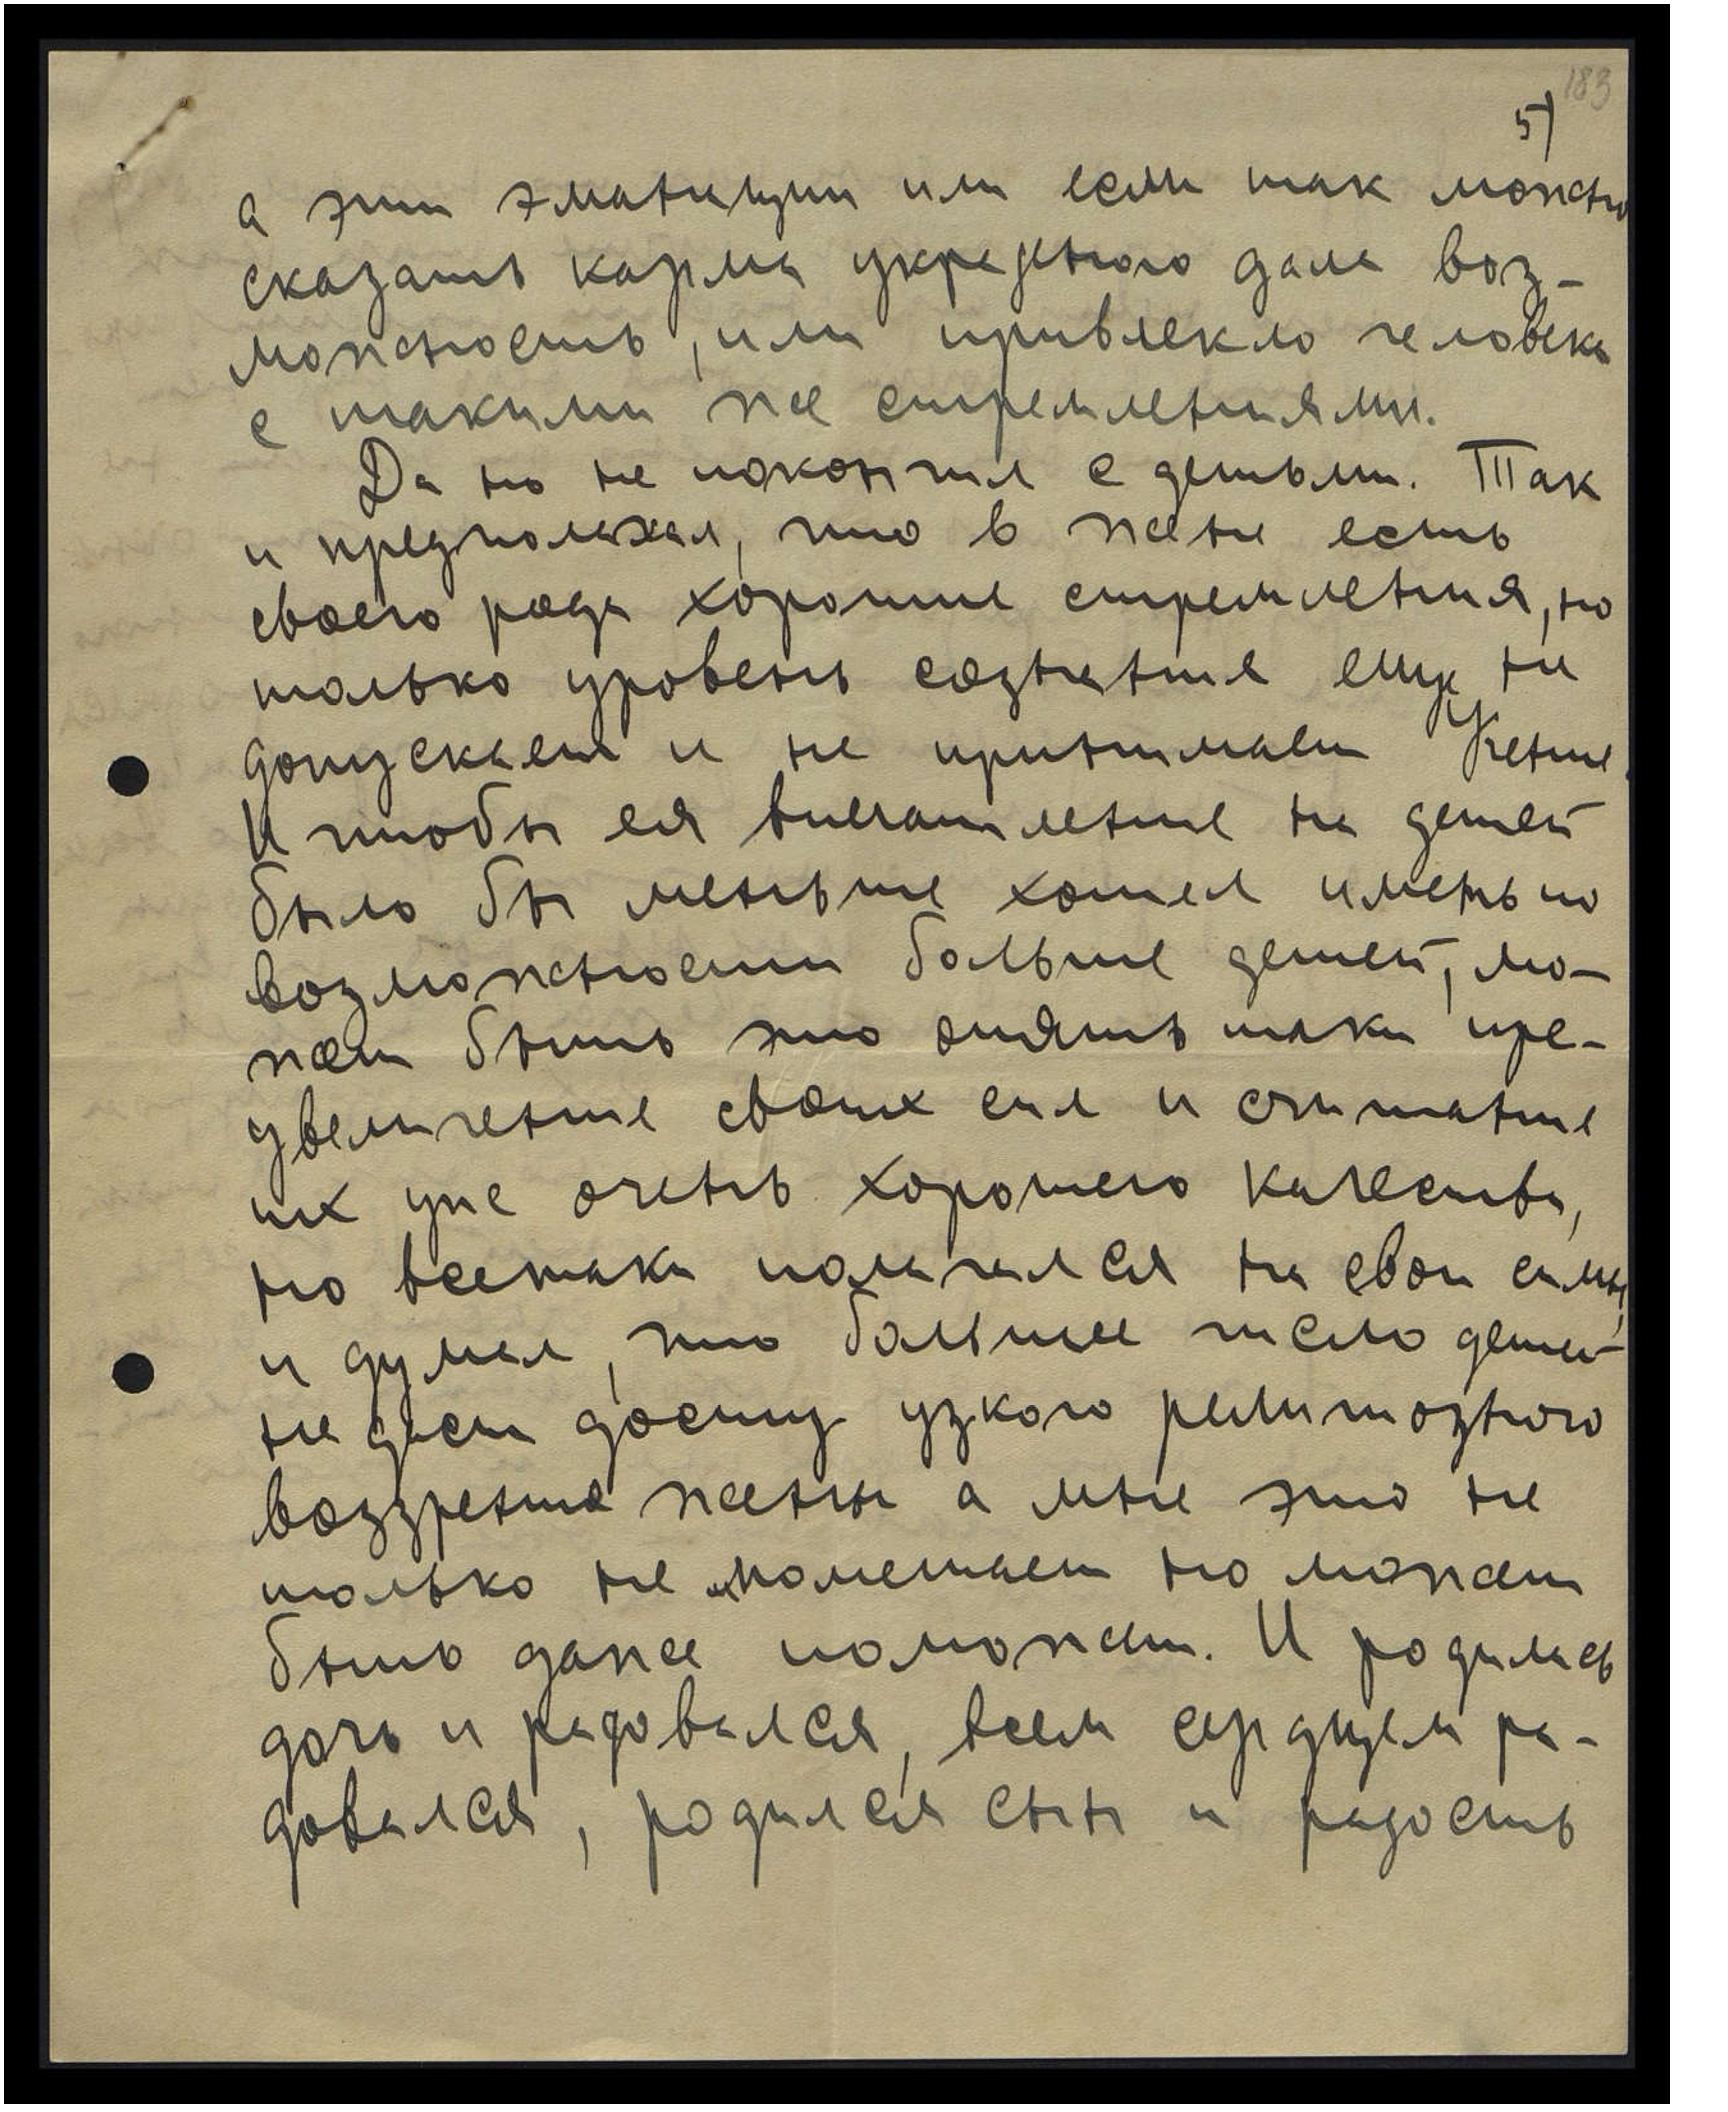 183
5)
а эти эманации или если так можно
сказать карма украденого дала воз-
можность, или привлекло человека
с такими же стремлениями.
Да но не покончил с детьми. Так
и предполажал, что в жене есть
своего рода хорошие стремления, но
только уровень сознания еще не
допускает и не принимает Учение.
И чтобы ея впечатление на детей
было бы меньше хотел иметь по
возможности больше детей, мо-
жет быть это опять таки пре-
увеличение своих сил и считание
их уже очень хорошего качества,
но всетаки полагался на свои силы,
и думал, что большее число детей
не даст доступ узкого религиозного
воззрения жены а мне это не
только не помешает но может
быть даже поможет. И родилась
дочь и радовался, всем сердцем ра-
довался, родился сын и радость